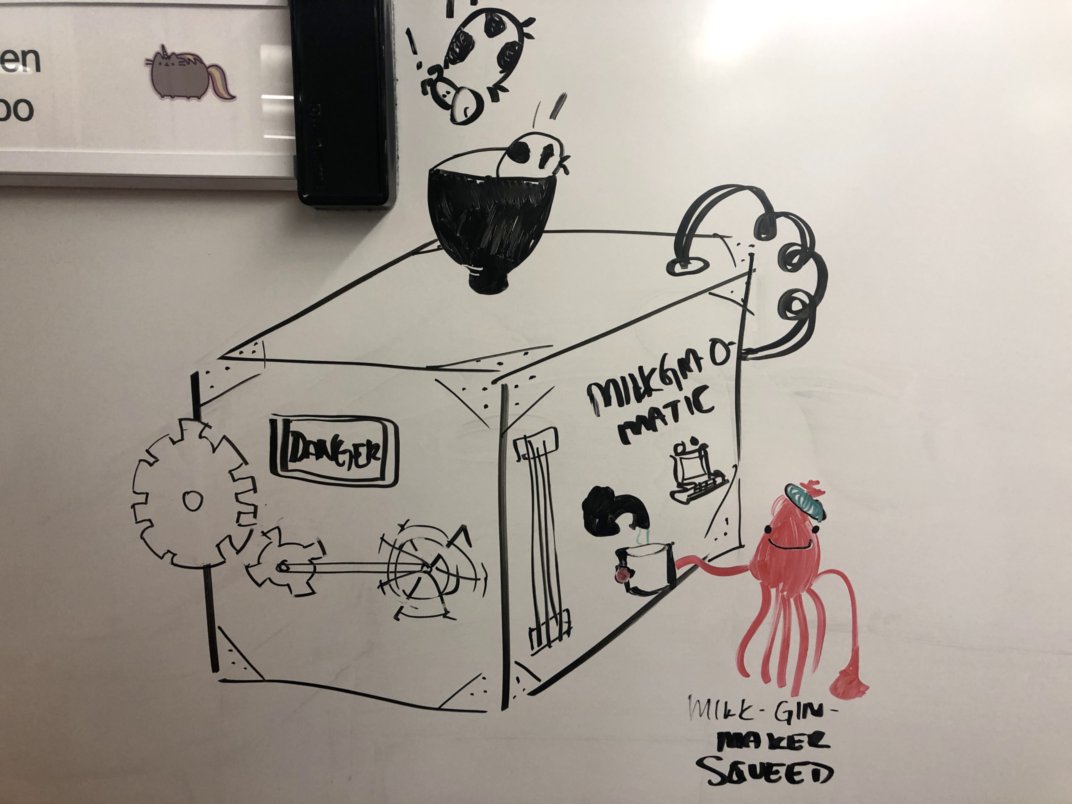 en
oo
DANGER
MILKGIN-O-
MATIC
MILK-GIN-
MAKER
SQUEED